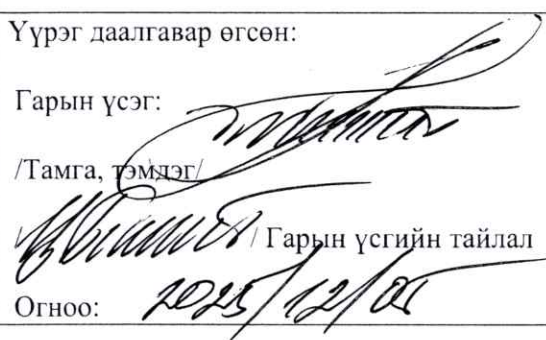 Үүрэг даалгавар өгсөн:
Гарын үсэг:
/Тамга, тэмдэг/
/ Гарын үсгийн тайлал
Огноо: 2025/12/05